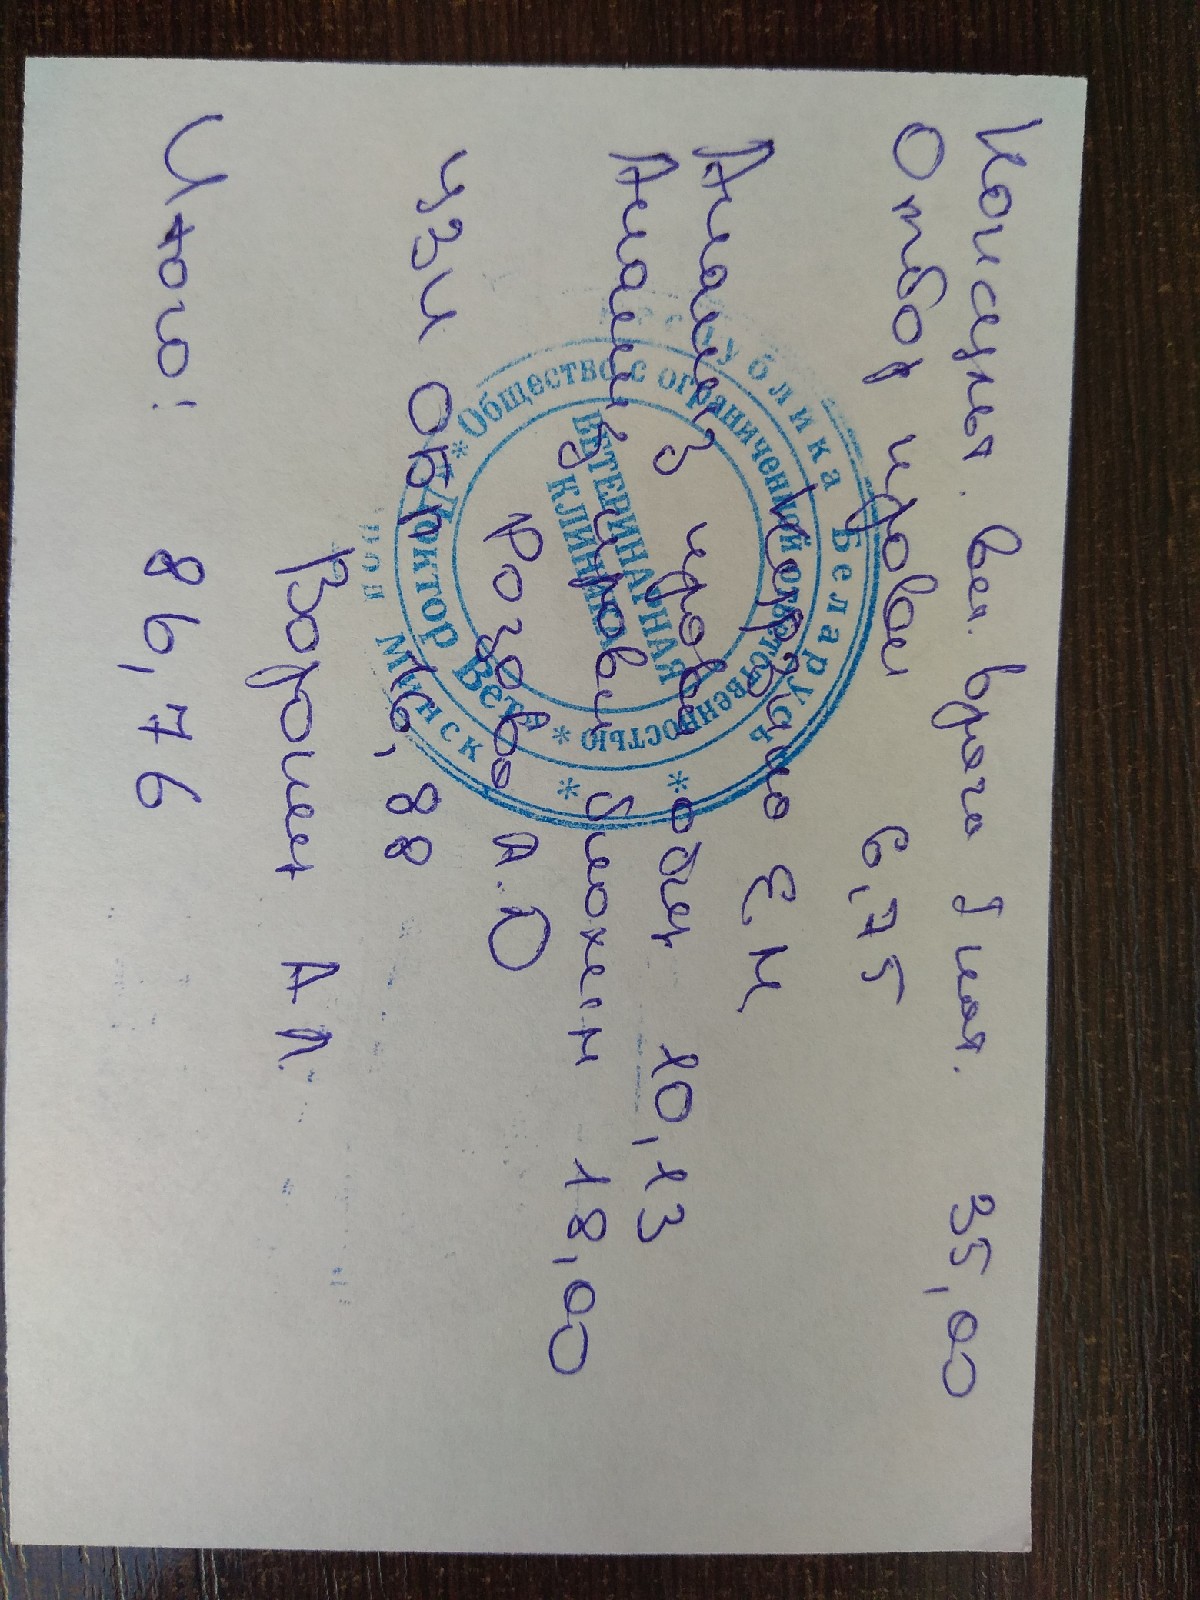 Консульт. вет. врача I кат. 35,00
Отбор крови 6,75
Керзино Е.М
Анализ крови общ 10,13
Анализ крови биохим 18,00
Розово А.О
УЗИ ОБП 16,88
Воронец А Л.
Итого: 86,76
Республика Беларусь
* Общество с ограниченной ответственностью *
"Доктор Вета"
ВЕТЕРИНАРНАЯ
КЛИНИКА
* Минск *